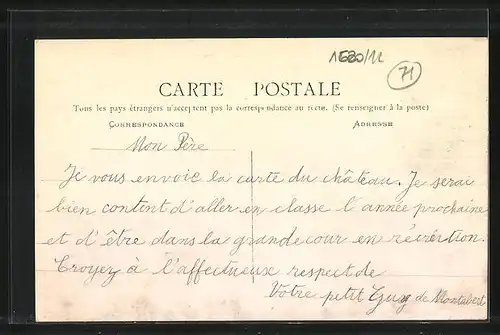 1520/12
71
CARTE POSTALE
Tous les pays étrangers n'acceptent pas la correspondance au recto. (Se renseigner à la poste)
CORRESPONDANCE
ADRESSE
Mon Père
Je vous envoie la carte du château. Je serai
bien content d'aller en classe l'année porochaine
et d'être dans la grande cour en récréation.
Croyez à l'affectueux respect de
Votre petit Guy de Montabert